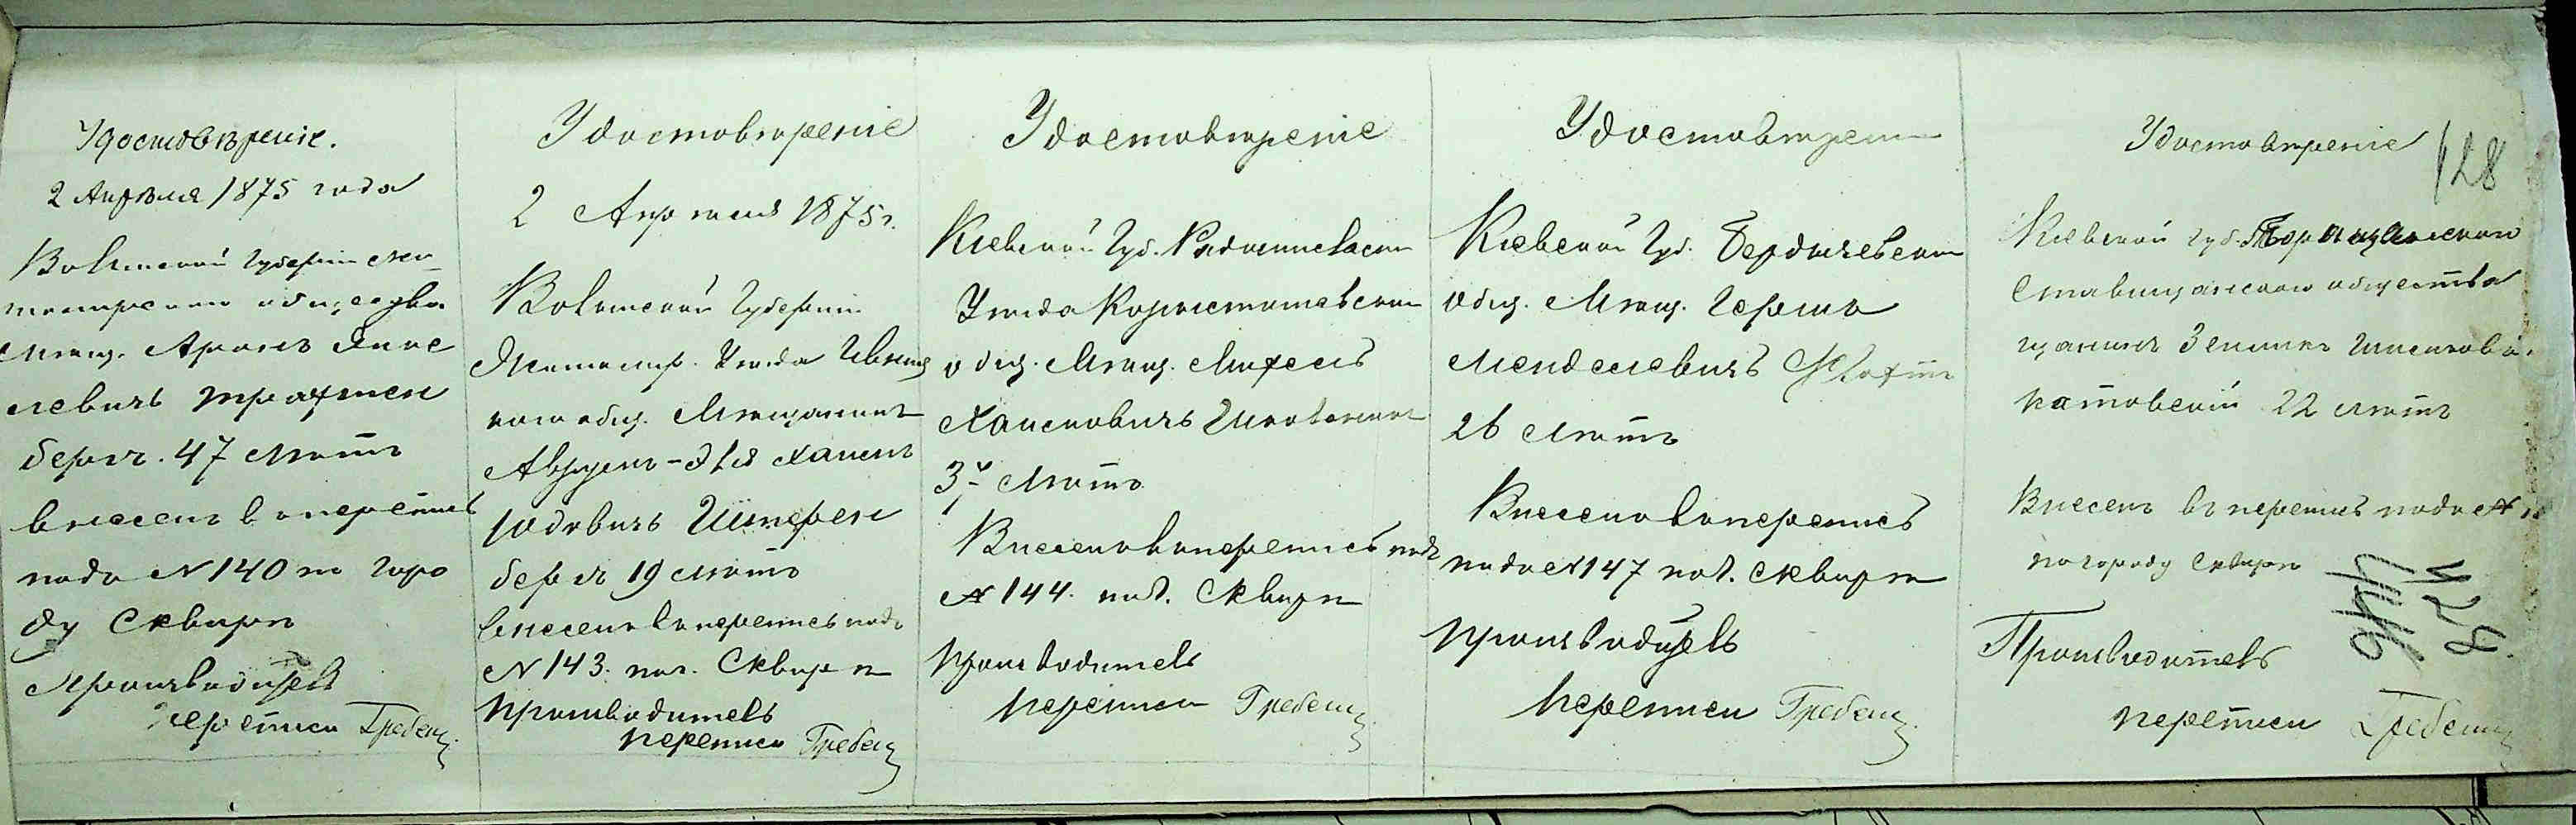 Удостовѣреніе.
2 Апрѣля 1875 года
Волынской Губерніи Жи-
томирскаго общества
Мѣщ. Аронъ Янке
левичъ Трахтен
бергъ. 47 лѣтъ
внесенъ въ перепись
подъ № 140 по горо
ду Сквирѣ
Производитель
переписи Гребен
Удостовѣреніе
2 Апрѣля 1875 г.
Волынской Губерніи
Житомир. Уѣзда
каго общ. Мѣщанинъ
Аврумъ-Эля Хаимъ
Юдовичъ Штерен
бергъ 19 лѣтъ
внесенъ въ перепись подъ
№ 143. по г. Сквирѣ
Производитель
переписи Гребен
Удостовѣреніе
Кіевской Губ. Радомысльскаго
Уѣзда Коростышевскаго
общ. Мѣщ. Михель
Хаимовичъ
лѣтъ
Внесенъ въ перепись подъ
№ 144. по г. Сквирѣ
Производитель
переписи Гребен
Удостовѣреніе
Кіевской Губ. Бердичевскаго
общ. Мѣщ. Гершъ
Менделевичъ
26 лѣтъ
Внесенъ въ перепись
подъ № 147 по г. Сквирѣ
Производитель
переписи Гребен
Удостовѣреніе
128
Кіевской губ. Таращанскаго
Ставищанскаго общества
щанинъ Зельманъ
патовскій 22 лѣтъ
Внесенъ въ перепись подъ №
по городу Сквирѣ
Производитель
переписи Гребен